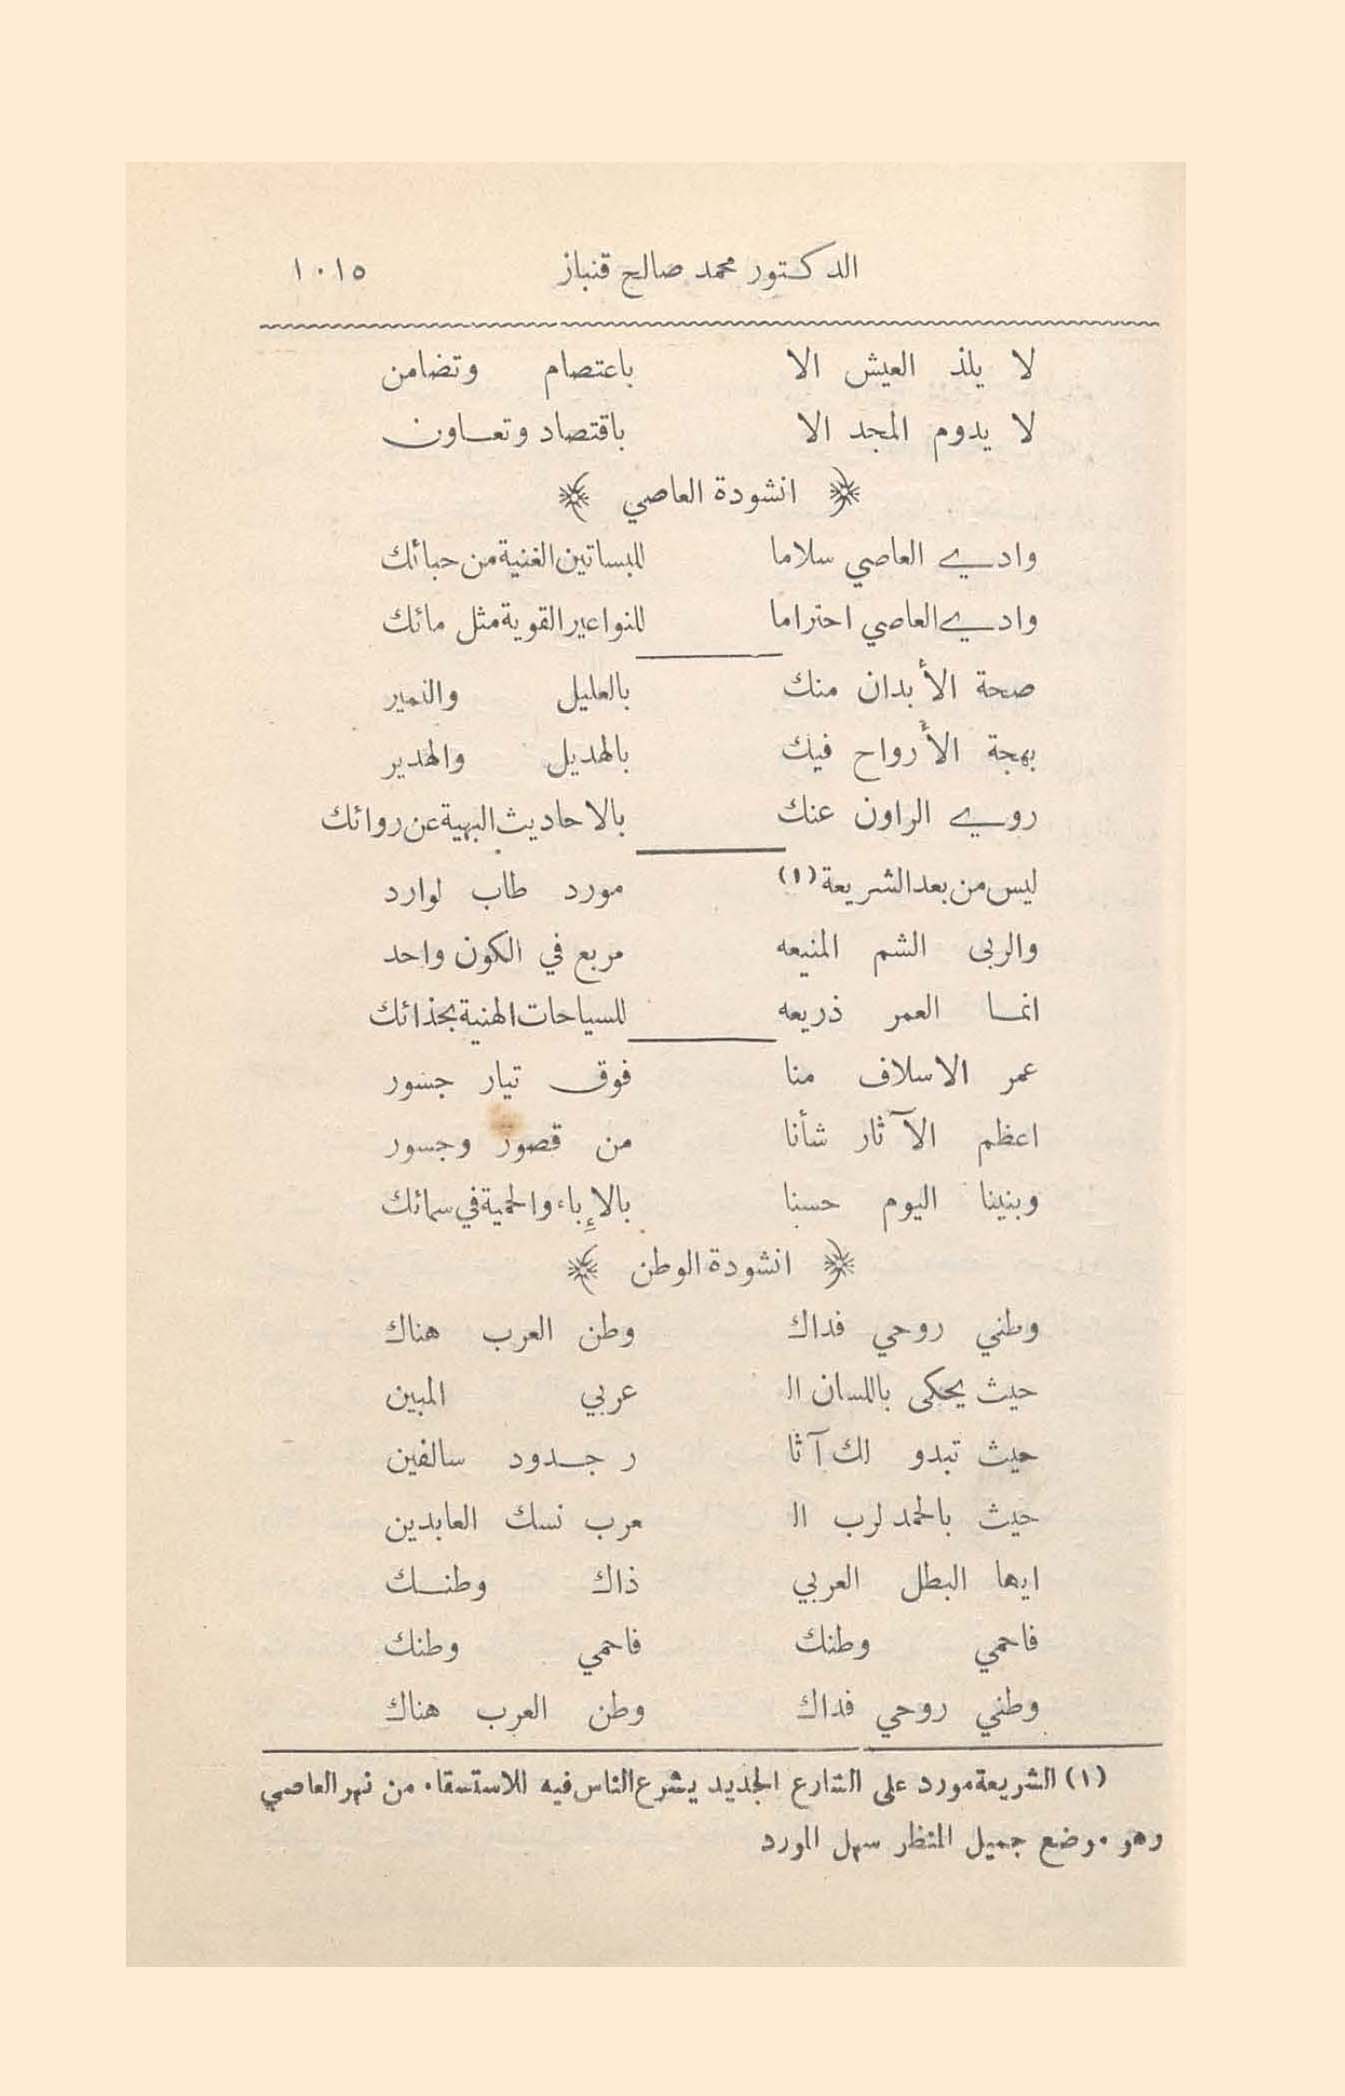 الدكتور محمد صالح قنباز ١٠١٥
لا يلذ العيش الا باعتصام وتضامن
لا يدوم المجد الا باقتصاد وتعاون
﴿ انشودة العاصي ﴾
وادي العاصي سلاما للبساتين الغنية من حبائك
وادي العاصي احتراما للنواعير القوية مثل مائك
صحة الأبدان منك بالعليل والنمير
بهجة الأرواح فيك بالهديل والهدير
روي الراون عنك بالاحاديث البهية عن روائك
ليس من بعد الشريعة (١) مورد طاب لوارد
والربى الشم المنيعه مربع في الكون واحد
انما العمر ذريعه للسياحات الهنية بحذائك
عمر الاسلاف منا فوق تيار جسور
اعظم الآثار شأنا من قصور وجسور
وبنينا اليوم حسنا بالإباء والحمية في سمائك
﴿ انشودة الوطن ﴾
وطني روحي فداك وطن العرب هناك
حيث يحكى باللسان ال عربي المبين
حيث تبدو لك آثا ر جدود سالفين
حيث بالحمد لرب ال عرب نسك العابدين
ايها البطل العربي ذاك وطنك
فاحمي وطنك فاحمي وطنك
وطني روحي فداك وطن العرب هناك
(١) الشريعة مورد على الشارع الجديد يشرع الناس فيه للاستسقاء من نهر العاصي
وهو موضع جميل المنظر سهل المورد